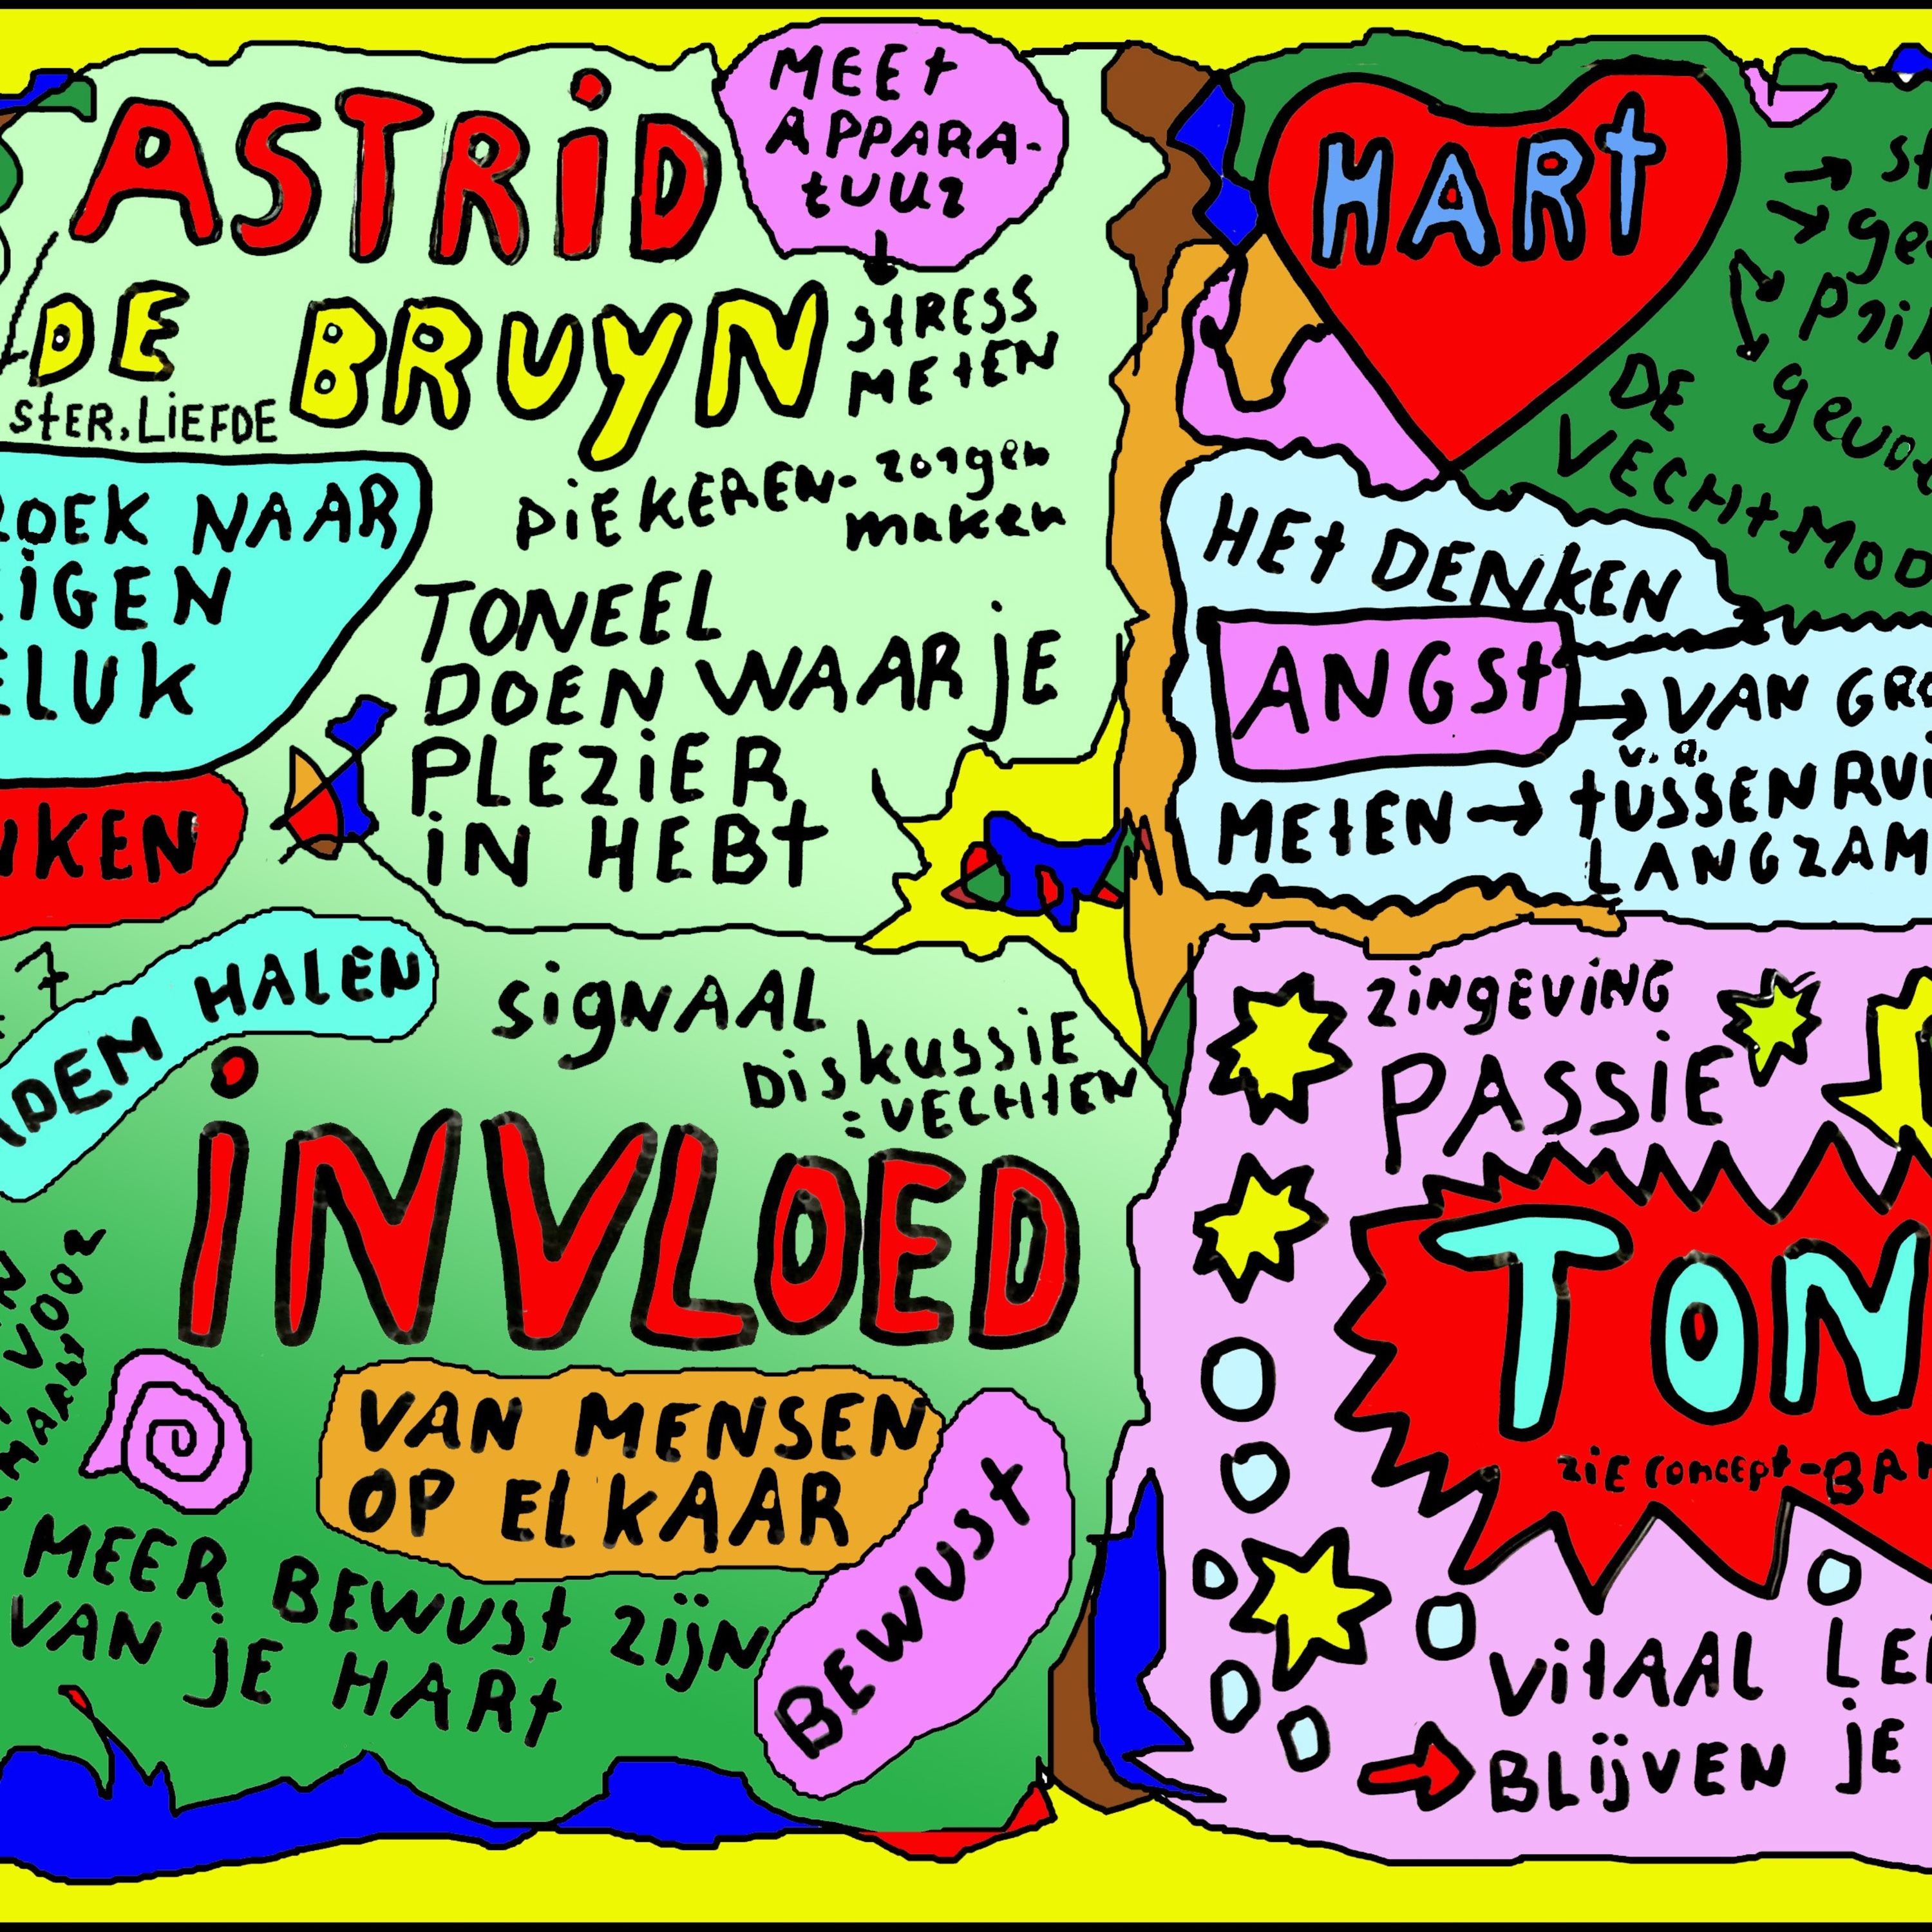 ASTRiD
MEEt
APPARA-
tUUR
DE BRUYN
StRESS
MEtEN
StER, LiEFDE
PiEKEREN- zorgen
maken
NAAR
TONEEL
DOEN WAAR jE
PLEZiER
iN HEBt
HALEN
SigNAAL
DiskussiE
= VECHtEN
iNVLOED
VAN MENSEN
OP ELKAAR
BEWUSt
MEER BEWUSt ZijN
VAN jE HARt
HARt
DE
VECHt-MOD
HEt DENKEN
ANGSt
→ VAN GRO
v.a.
MEtEN → tUSSEN RUi
LANGZAM
ZiNgEViNG
PASSiE
TON
ziE concept-BA
VitAAL LE
BLijVEN jE